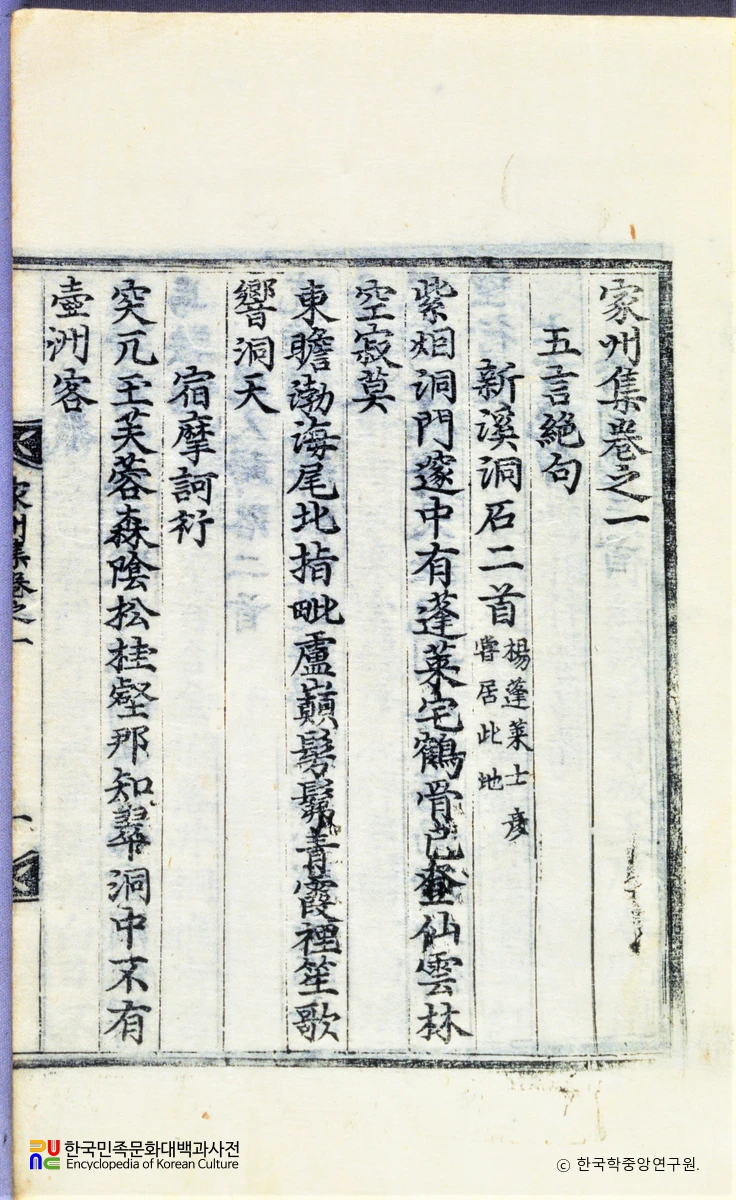 家州集卷之一
五言絶句
新溪洞石二首 楊蓬萊士彦
嘗居此地
紫烟洞門邃中有蓬萊宅鶴骨已登仙雲林
空寂莫
東瞻渤海尾北指毗盧巓髣髴青霞裡笙歌
響洞天
宿摩訶衍
突兀玉芙蓉森陰松桂壑那知翠洞中不有
壺洲客
家州集卷之一
一
한국민족문화대백과사전
Encyclopedia of Korean Culture
© 한국학중앙연구원.